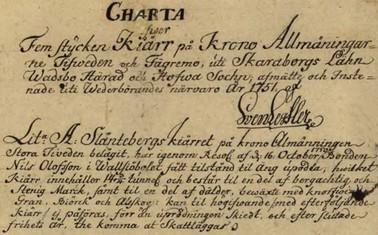 CHARTA
öfwer
Fem stycken Kiärr på Krono Allmäningar-
ne Tifweden och Fägremo, uti Skaraborgs Lähn
Wadsbo Härad och Hofwa Sochn; afmätte och Inste-
nade uti Wederbörandes närvaro År 1751. af
Sven
Litª A: Släntebergs kiärret på krono Almänningen
Stora Tiveden belägit, har igenom Resol: af d: 16 October Bonden
Nils Olofsson i Wallstöbolet fått tilstånd til Äng upodla, hwilket
kiärr innehåller 14 tunnel och består til en del af bergachtig och
Stenig Marck, samt til en del af däldar, bewäxte med
Gran, Biörck och Alskog: kan til högifwande med efterföljande
kiärr påföras, förr än uprödningen Skiedt, och efter slutade
frihets år, the komma at Skattläggas